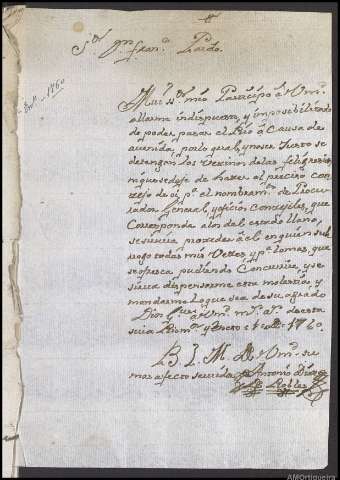 Sr. Dn. Fran.co Pardo.
En.o 1760
Mui Sr. mio Participo a Vm.
allarme indispuesto, y imposibilitado
de poder pasar el Rio a Causa de
avenida, por lo que
detengan los Vecinos de las feligresias
ni que se deje de hacer al preciso con
zejo de oi p.a el nombram.to de Procu
rador General, y oficios Concejiles, que
Corresponde a los del estado llano,
se sirva proceder a el en quien sub
rogo todas mis Vezes y p.a lo mas, que
se ofrezca pudiendo Concurrir, y se
sirva dispensarme esta molestia, y
mandarme lo que sea de su agrado
Dios gue. a Vm. m.s a.s de esta
suia y Enero 1 de 1760.
B. L. M. de Vm. su
mas afecto servidor Antonio Diaz
de Robles
AMOrtigueira